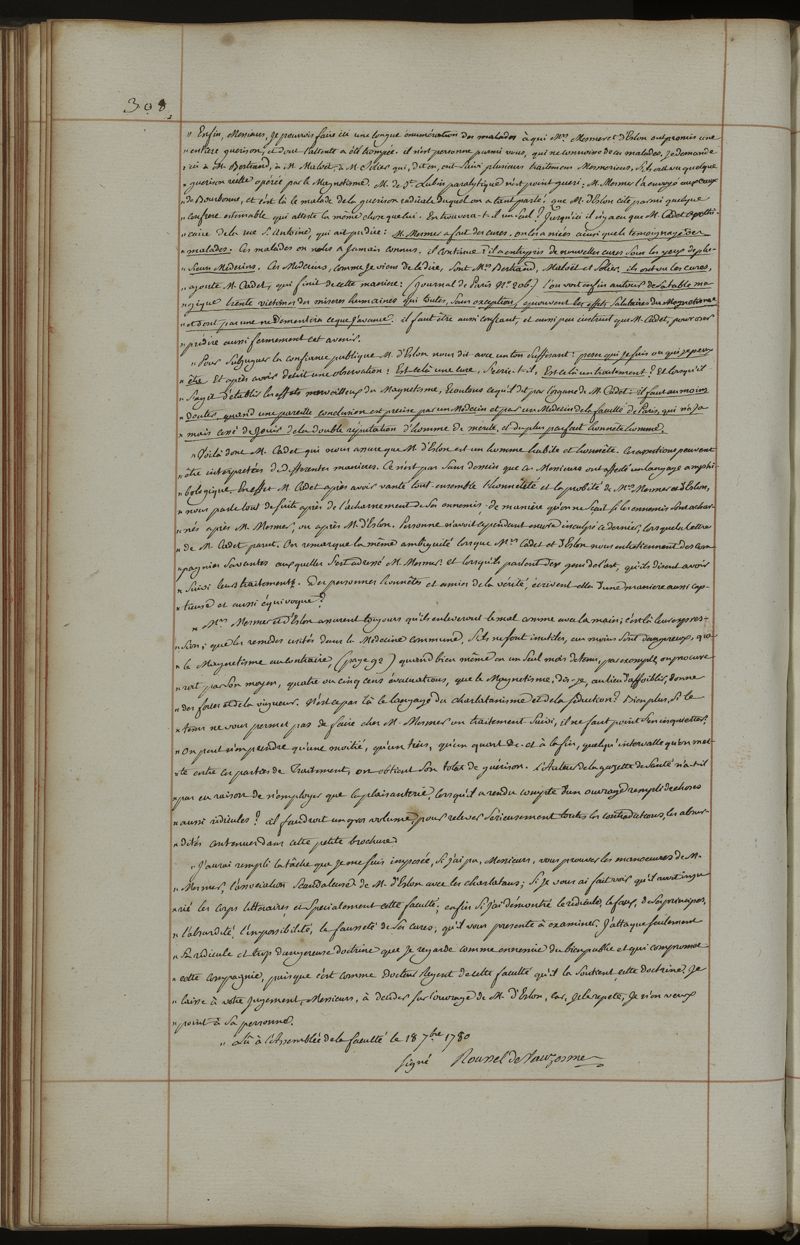 308.
" Enfin, Messieurs, Je pourrois faire ici une longue énumération des malades à qui Mrs. Mesmer et d'Eslon ont promis une
" entiere guerison, et dont l'attente a été trompée. il n'est personne parmi vous, qui ne connoisse de ces malades. Je demande
" ici à M. Bertrand, à M. Maloët, à M. Solier qui, dit on, ont suivi plusieurs traitemens Mesmeriens, S'ils ont vu quelque
" guerison réelle opérée par le Magnetisme. M. de St. Aubin paralytique n'est point gueri; M. Mesmer l'a envoyé aux eaux
" de Bourbonne, et c'est là le malade de la guerison radicale duquel on a tant parlé; que M. d'Eslon cite parmi quelque
" confrere estimable qui atteste la même chose que lui. En trouvera-t-il un seul? Jusqu'ici il n'y a eu que M. Cadet apothi-
" caire de la rue St. Antoine, qui ait pu dire: M. Mesmer a fait des cures, on les a niées ainsi que le temoignage des
" malades. Ces malades on ne les a jamais connus. il continue: il a entrepris de nouvelles cures sous les yeux de plu-
" sieurs Médecins. Ces Médecins, comme Je viens de le dire, sont Mrs. Bertrand, Maloët et Solier; ils ont vu les cures,
" ajoute M. Cadet, qui finit de cette maniere: (Journal de Paris No. 206.) l'on voit enfin autour de sa table ma-
" gique trente victimes des miseres humaines qui toutes, sans exception, éprouvent les effets salutaires du Magnetisme
" et dont pas une ne dementira ce que J'avance. il faut être aussi confiant, et aussi peu instruit que M. Cadet, pour oser
" predire aussi fermement cet avenir.
" Pour subjuguer la confiance publique M. d'Eslon nous dit avec un ton suffisant: pesez qui Je suis ou qui Je peux
" être. Et après avoir detaillé une observation: Est-ce là une cure, s'ecrie-t-il, Est-ce là un traitement? Et lorsqu'il
" s'agit d'établir les effets merveilleux du Magnetisme, Ecoutons ce qu'il dit par l'organe de M. Cadet: il faut au moins
" douter, quand une pareille conclusion est precise par un Médecin et par un Médecin de la faculté de Paris, qui n'a Ja-
" mais cessé de Jouir de la double réputation d'homme de merite, et du plus parfait honnête homme.
" Voilà donc M. Cadet qui nous assure que M. d'Eslon est un homme habile et honnête. Ces expressions peuvent
" être interpretées de differentes manieres. Ce n'est pas sans dessein que ces Messieurs ont affecté un langage amphi-
" bologique. En effet M. Cadet après avoir vanté tout ensemble l'honnêteté et la probité de Mrs. Mesmer et d'Eslon,
" nous parle tout de suite après de l'acharnement de ses ennemis, de maniere qu'on ne sçait si les ennemis sont achar-
" nés après M. Mesmer, ou après M. d'Eslon. Personne n'avoit cependant encore inculpé ce dernier, lorsque la lettre
" de M. Cadet parut. On remarque la même ambiguité lorsque Mrs. Cadet et d'Eslon nous entretiennent des com-
" pagnies savantes auxquelles s'est adressé M. Mesmer, et lorsqu'ils parlent des gens de l'art, qu'ils disent avoir
" suivi leurs traitements. Des personnes honnêtes et amies de la vérité, écrivent elles d'une maniere aussi cap-
" tieuse et aussi équivoque?
" Mrs. Mesmer et d'Eslon assurent toujours qu'ils enleveront le mal comme avec la main; c'est là leur expres-
" sion; que les remedes usités dans la Médecine commune, s'ils ne sont inutiles, au moins sont dangereux, que
" le Magnetisme au contraire, (page 92) quand bien même en un seul mois de tems, par exemple, on procure-
" roit par son moyen, quatre ou cinq cens évacuations, que le Magnetisme, dis-je, au lieu d'affoiblir, donne
" des forces et de la vigueur. N'est-ce pas là le langage du charlatanisme et de la séduction? Bien plus, Si le
" tems ne vous permet pas de faire chez M. Mesmer un traitement suivi, il ne faut point s'en inquietter.
" On peut n'en prendre qu'une moitié, qu'un tiers, qu'un quart &c. et à la fin, quelqu'intervalle qu'on met-
" te entre ces parties de Traitement, on obtient son total de guérison. L'Auteur de la gazette de Santé n'a-t-il
" pas eu raison de n'employer que la plaisanterie, lorsqu'il a rendu compte d'un ouvrage rempli de choses
" aussi ridicules? il faudroit un gros volume pour relever sérieusement toutes les contradictions, les absur-
" dités contenues dans cette petite brochure.
" J'aurai rempli la tâche que Je me suis imposée, Si j'ai pu, Messieurs, vous prouver les manoeuvres de M.
" Mesmer, l'association scandaleuse de M. d'Eslon avec les charlatans; si Je vous ai fait voir qu'il avoit inju-
" rié les corps littéraires et specialement cette faculté; enfin si J'ai démontré le ridicule, le faux, de ses principes,
" l'absurdité, l'impossibilité, la fausseté de ses cures, qu'il vous presente à examiner. J'attaque seulement
" sa ridicule et trop dangereuse doctrine que Je regarde comme ennemie du bien public et qui compromet
" cette compagnie, puisque c'est comme Docteur Regent de cette faculté qu'il la soutient, cette doctrine. Je
" laisse à votre Jugement, Messieurs, à decider sur l'ouvrage de M. d'Eslon, Car, Je le repete, Je n'en veux
" point à sa personne.
" Lû à l'Assemblée de la faculté le 18 7bre 1780
signé Roussel de Vauzesme